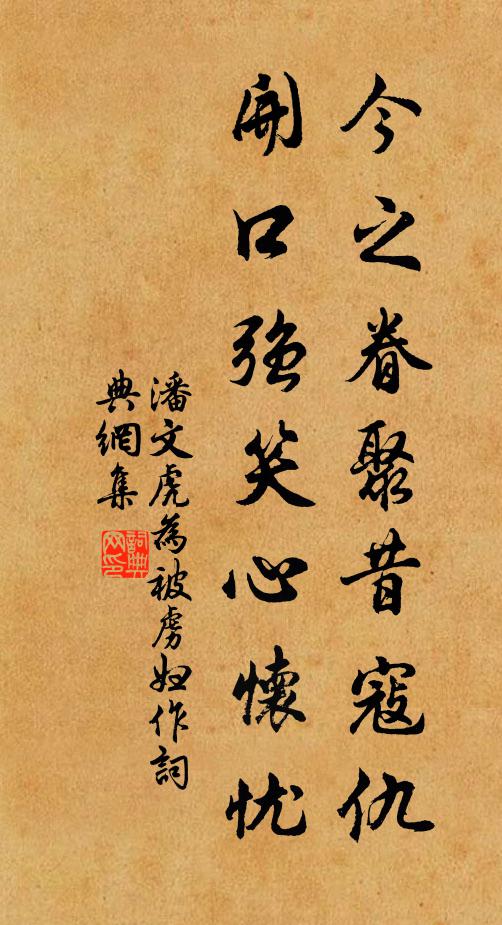 今之眷聚昔寇仇
開口強笑心懷忧
潘文虎為被虜婦作詞
典網集
詞典网印